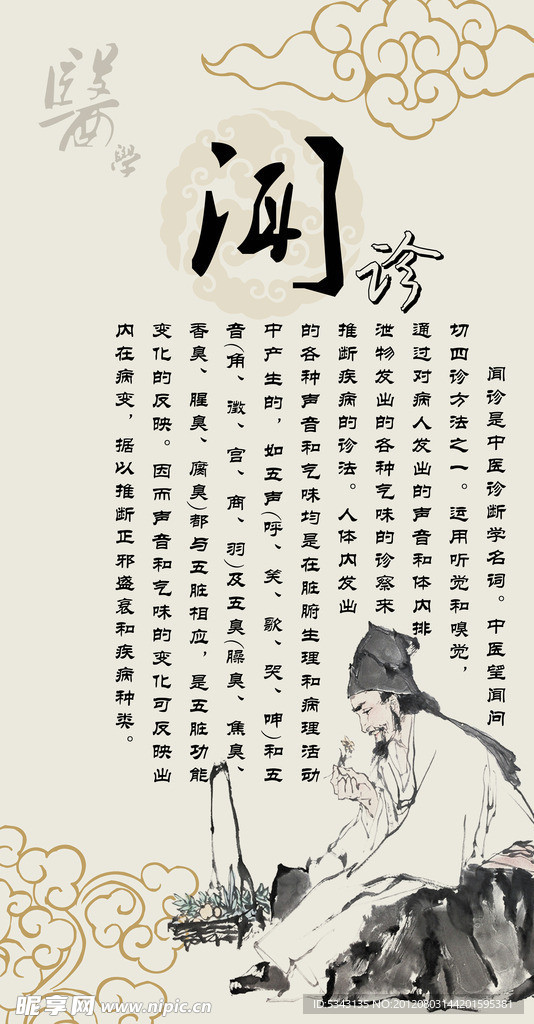 醫
學
闻
诊
闻诊是中医诊断学名词。中医望闻问
切四诊方法之一。运用听觉和嗅觉，
通过对病人发出的声音和体内排
泄物发出的各种气味的诊察来
推断疾病的诊法。人体内发出
的各种声音和气味均是在脏腑生理和病理活动
中产生的，如五声(呼、笑、歌、哭、呻)和五
音(角、澂、宫、商、羽)及五臭(臊臭、焦臭、
香臭、腥臭、腐臭)都与五脏相应，是五脏功能
变化的反映。因而声音和气味的变化可反映出
内在病变，据以推断正邪盛衰和疾病种类。
昵享网 www.nipic.cn
ID:5343135 NO:20120803144201595381